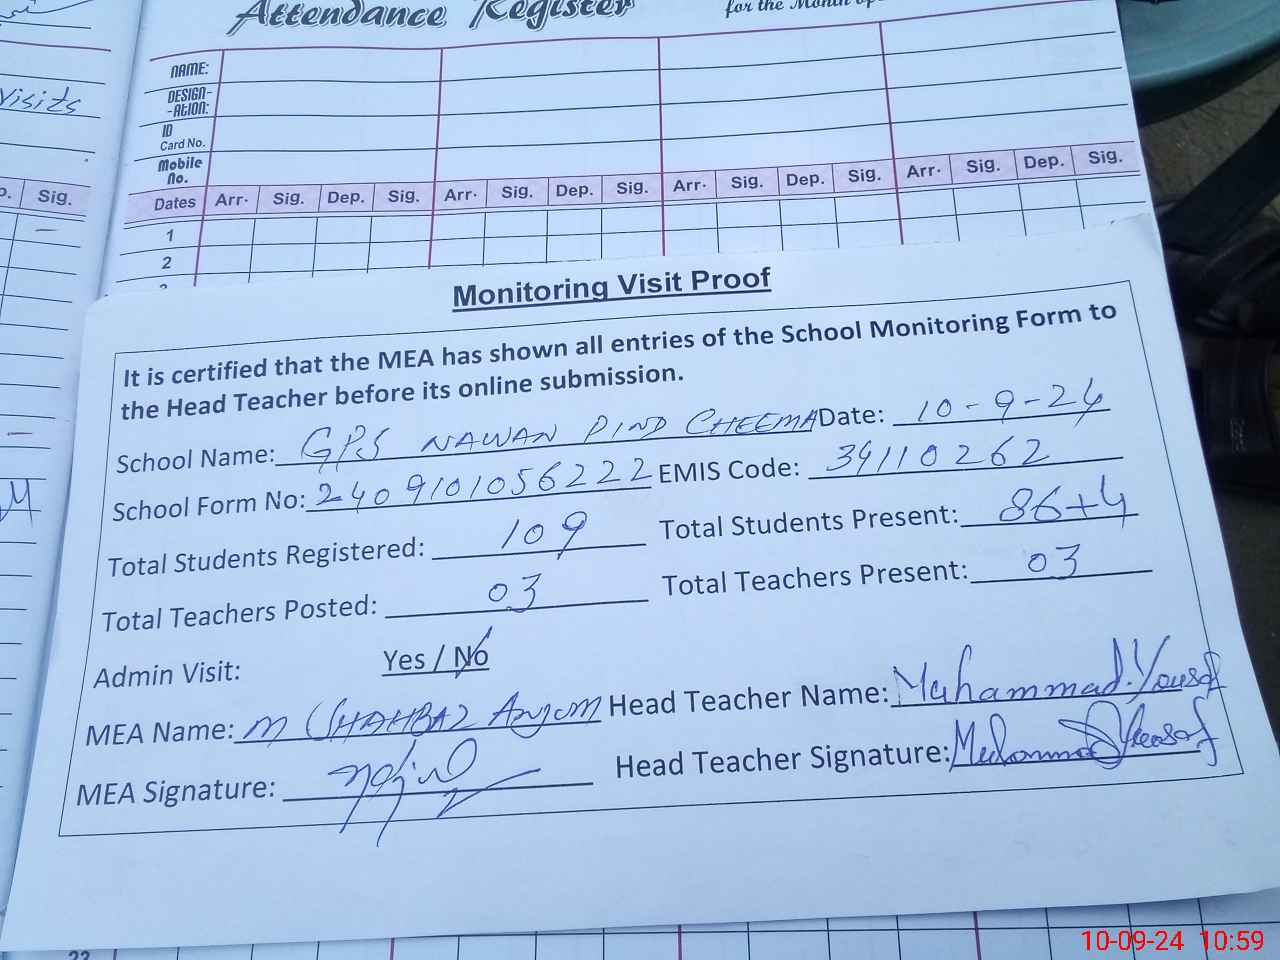 Attendance Register
for the Month of
Visits
NAME:
DESIGN-
-ATION:
ID
Card No.
Mobile
No.
Sig.
Dates Arr. Sig. Dep. Sig. Arr. Sig. Dep. Sig. Arr. Sig. Dep. Sig. Arr. Sig. Dep. Sig.
1
2
Monitoring Visit Proof
It is certified that the MEA has shown all entries of the School Monitoring Form to
the Head Teacher before its online submission.
School Name: GPS NAWAN PIND CHEEMA Date: 10-9-24
School Form No: 2409101056222 EMIS Code: 34110262
Total Students Registered: 109 Total Students Present: 86+4
Total Teachers Posted: 03 Total Teachers Present: 03
Admin Visit: Yes / No
MEA Name: M SHAHBAZ ANJUM Head Teacher Name: Muhammad Yousaf
MEA Signature: Head Teacher Signature: Muhammad Yousaf
10-09-24 10:59